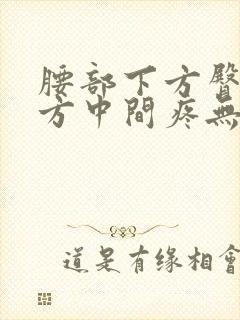 腰部下方臀
方中間疼無
道是有缘相會